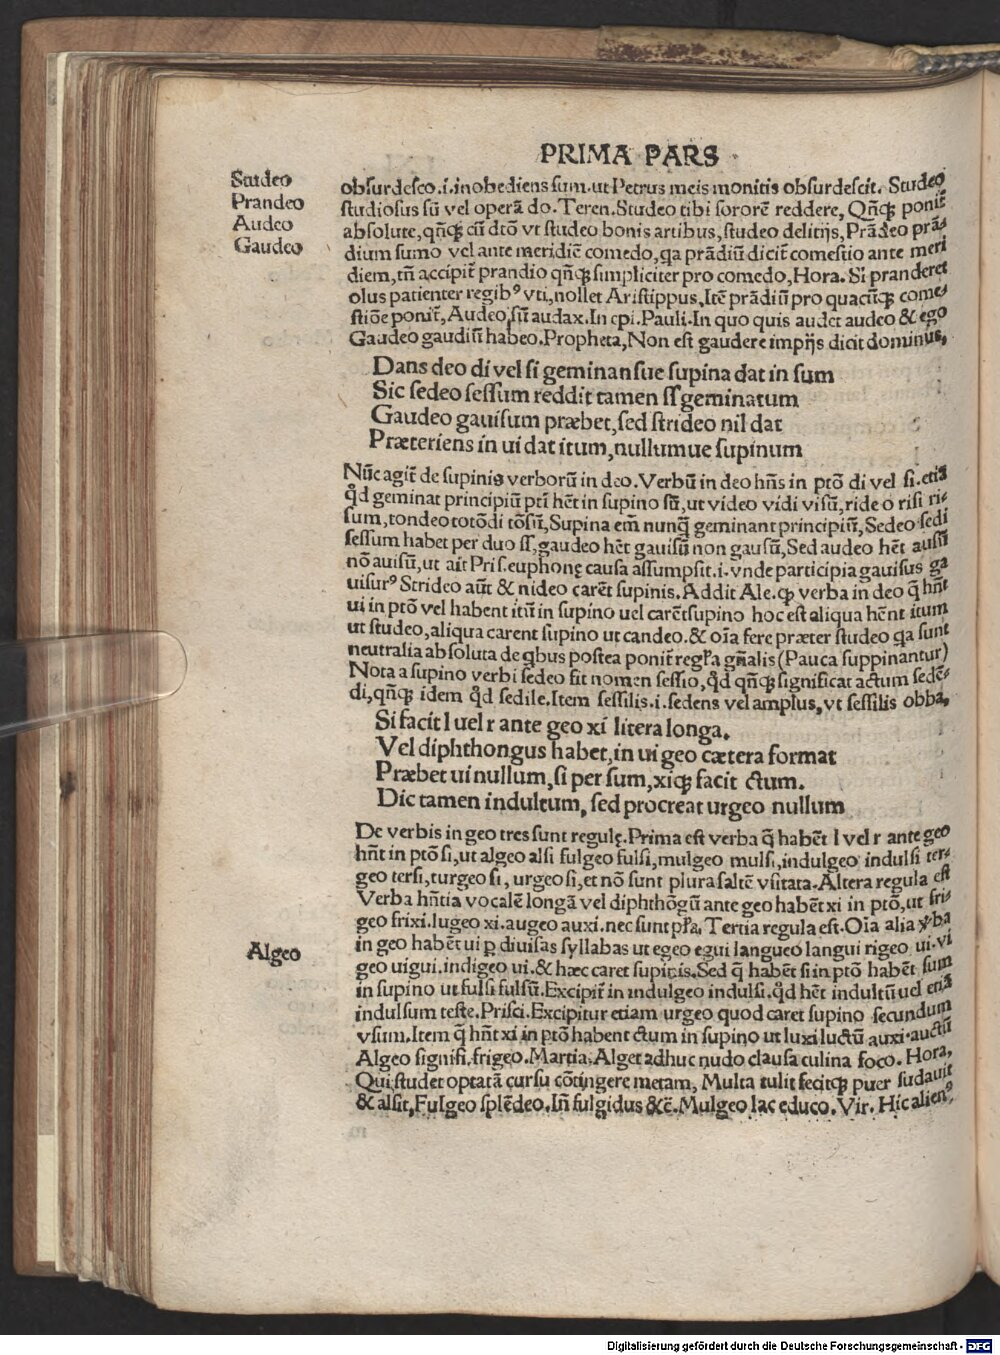 PRIMA PARS
Studeo
Prandeo
Audeo
Gaudeo
obsurdesco.i.inobediens sum.ut Petrus meis monitis obsurdescit. Studeo
studiosus sū vel operā do. Teren. Studeo tibi sororē reddere, Qn̄qꝫ ponit̄
absolute, qn̄qꝫ cū dtō vt studeo bonis artibus, studeo delitijs, Prādeo prā⸗
dium sumo vel ante meridiē comedo, qa prādiū dicit̄ comestio ante meri
diem, tn̄ accipit̄ prandio qn̄qꝫ simpliciter pro comedo, Hora. Si pranderet
olus patienter regibꝰ vti, nollet Aristippus, Itē prādiū pro quacūqꝫ come⸗
stiōe ponit̄, Audeo, sū audax. In epi. Pauli. In quo quis audet audeo & ego
Gaudeo gaudiū habeo. Propheta, Non est gaudere impijs dicit dominus,
Dans deo di vel si geminansue supina dat in sum
Sic sedeo sessum reddit tamen ss geminatum
Gaudeo gauisum præbet, sed strideo nil dat
Præteriens in ui dat itum, nullumue supinum
Nūc agit̄ de supinis verborū in deo. Verbū in deo hn̄s in ptō di vel si. etiā
qd̄ geminat principiū ptī hēt in supino sū, ut video vidi visū, ride o risi ri⸗
sum, tondeo totōdi tōsū, Supina em̄ nunq̄ geminant principiū, Sedeo sedi
sessum habet per duo ss, gaudeo hēt gauisū non gausū, Sed audeo hēt ausū
nō auisū, ut ait Pris. euphonę causa assumpsit.i. vnde participia gauisus ga
uisurꝰ Strideo aūt & nideo carēt supinis. Addit Ale. ꝙ verba in deo q̄ hn̄t
ui in ptō vel habent itū in supino uel carēt supino hoc est aliqua hēnt itum
ut studeo, aliqua carent supino ut candeo. & oīa fere præter studeo qa sunt
neutralia absoluta de qbus postea ponit̄ regl̄a gn̄alis (Pauca suppinantur)
Nota a supino verbi sedeo fit nomen sessio, qd̄ qn̄qꝫ significat actum sedē⸗
di, qn̄qꝫ idem qd̄ sedile. Item sessilis.i. sedens vel amplus, vt sessilis obba,
Si facit l uel r ante geo xi litera longa.
Vel diphthongus habet, in ui geo cætera format
Præbet ui nullum, si per sum, xiqꝫ facit ctum.
Dic tamen indultum, sed procreat urgeo nullum
De verbis in geo tres sunt regulę. Prima est verba q̄ habēt l vel r ante geo
hn̄t in ptō si, ut algeo alsi fulgeo fulsi, mulgeo mulsi, indulgeo indulsi ter⸗
geo tersi, turgeo si, urgeo si, et nō sunt plura saltē vsitata. Altera regula est
Verba hn̄tia vocalē longā vel diphthōgū ante geo habēt xi in ptō, ut fri⸗
geo frixi. lugeo xi. augeo auxi. nec sunt pl̄a. Tertia regula est. Oīa alia v̄ba
Algeo
in geo habēt ui ꝑ diuisas syllabas ut egeo egui langueo langui rigeo ui. vi
geo uigui. indigeo ui. & hæc caret supinis. Sed q̄ habēt si in ptō habēt sum
in supino ut fulsi fulsū. Excipit̄ in indulgeo indulsi. qd̄ hēt indultū uel etiā
indulsum teste. Prisci. Excipitur etiam urgeo quod caret supino secundum
vsum. Item q̄ hn̄t xi in ptō habent ctum in supino ut luxi luctū auxi. auctū
Algeo signifi. frigeo. Martia. Alget adhuc nudo clausa culina foco. Hora,
Qui studet optatā cursu cōtingere metam, Multa tulit fecitqꝫ puer sudauit
& alsit, Fulgeo splēdeo. In̄ fulgidus &c̄. Mulgeo lac educo. Vir. Hic alienꝰ
Digitalisierung gefördert durch die Deutsche Forschungsgemeinschaft - DFG